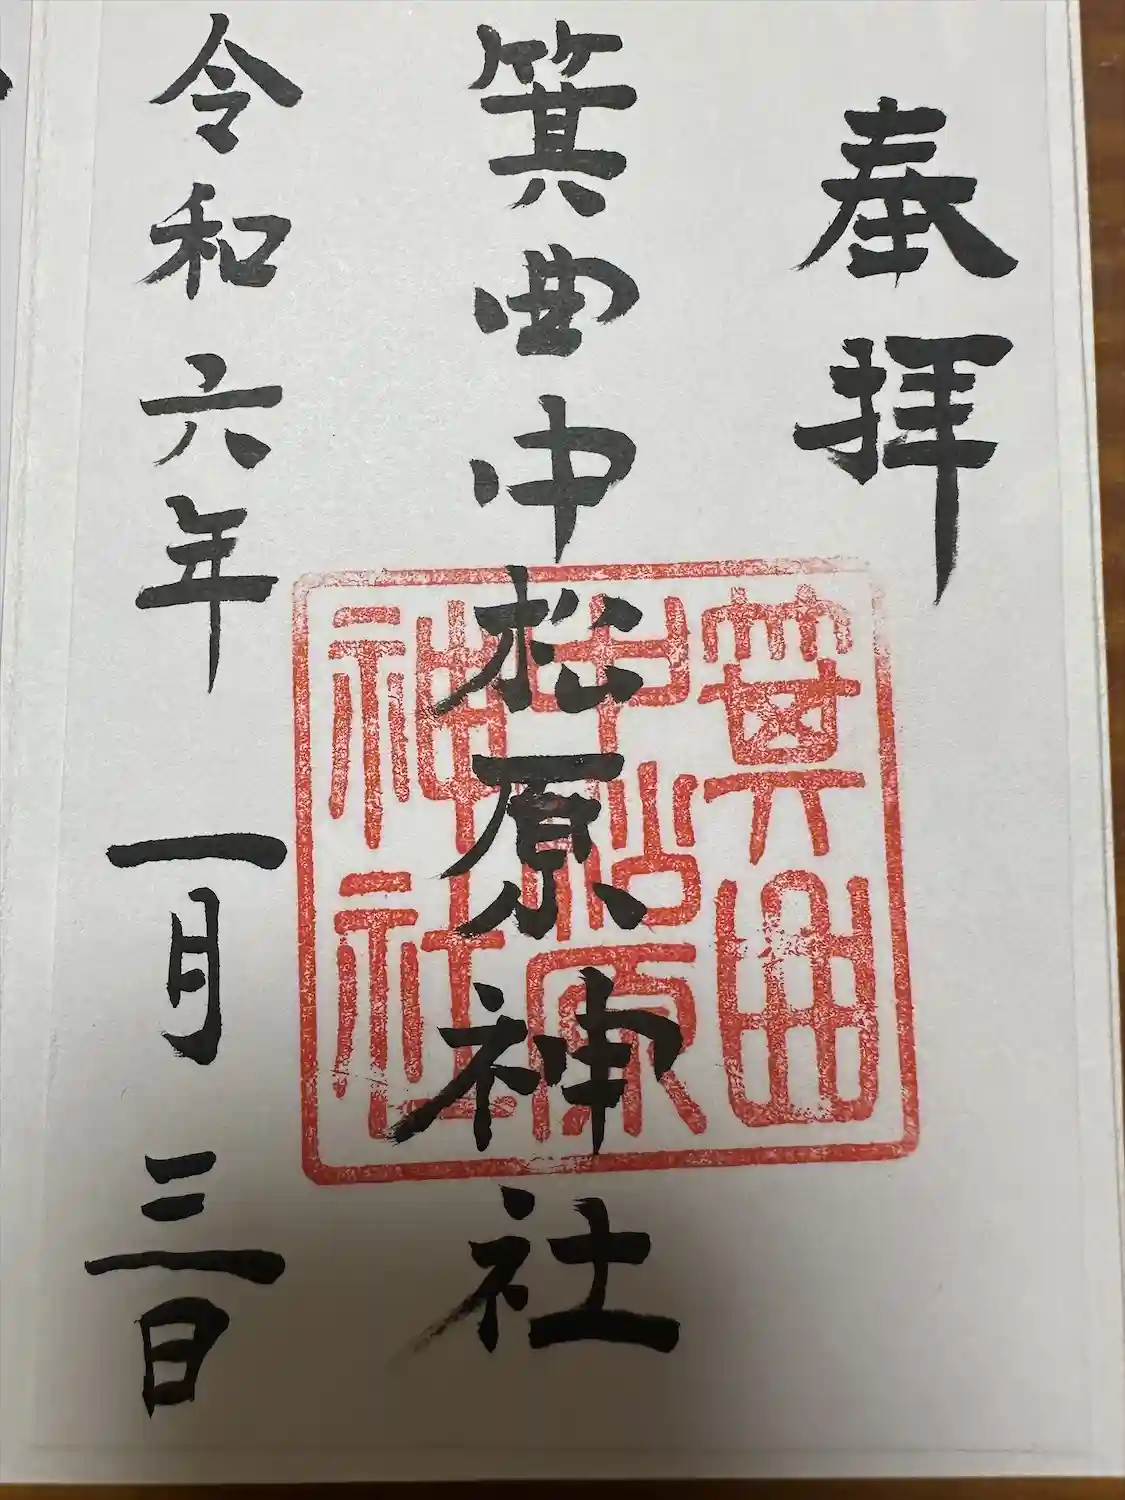 奉拝
箕曲中松原神社
箕曲
中松原
神社
令和六年 一月三日